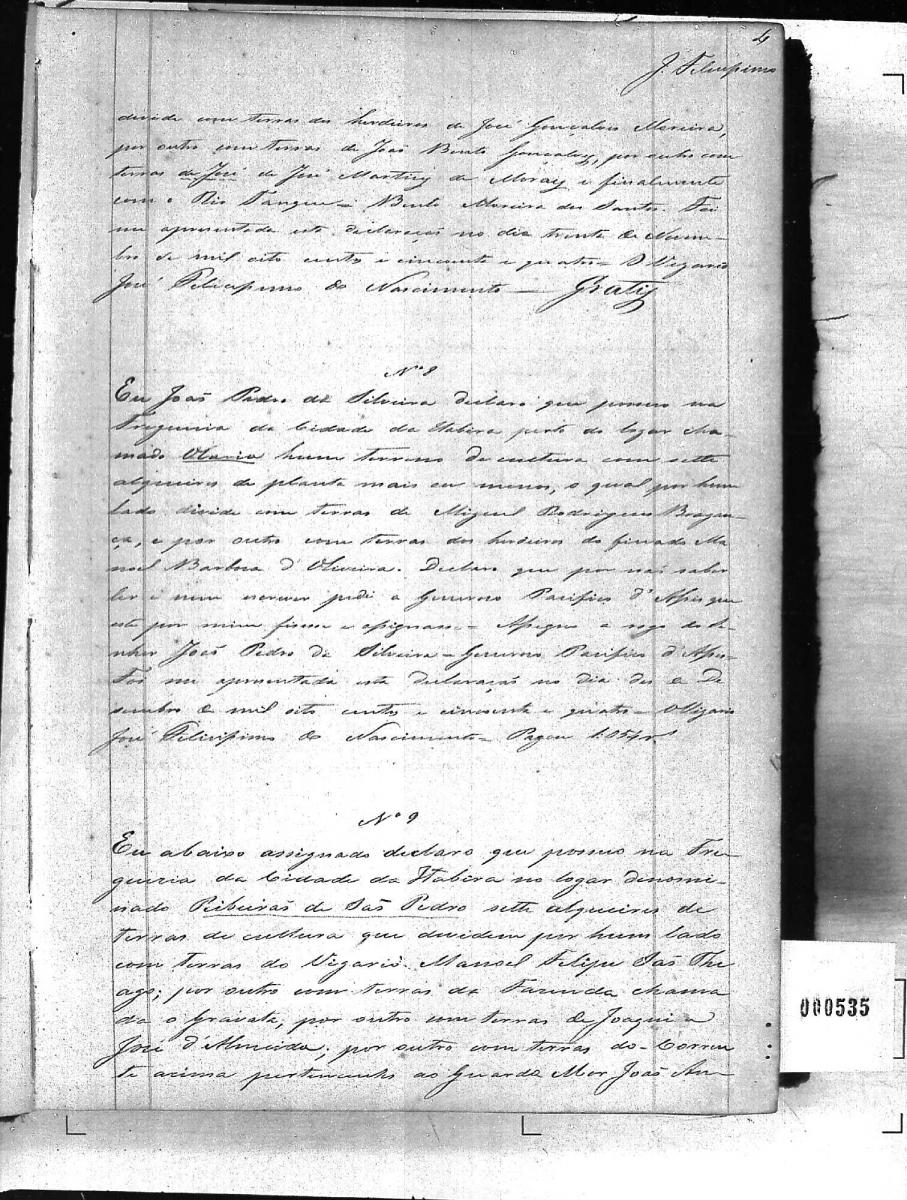 4
J. Felicissimo
devide com terras dos herdeiros de José Gonçalves Moreira,
por outro com terras de João Bento Gonçalvez, por outro com
terras de José de José Martiz de Moraiz e finalmente
com o Rio Tangue = Bento Moreira dos Santos. Foi
me apresentada esta declaração no dia trinta de Novem-
bro de mil oito centos e cincoente e quatro = O Vigario
José Felicissimo do Nascimento = Gratiz
Nº 8
Eu João Pedro da Silveira declaro que possuo na
Freguezia da Cidade da Itabira perto do lugar cha-
mado Olaria hum terreno de cultura com sette
alqueires de planta mais ou menos, o qual por hum
lado divide com terras de Miguel Rodrigues Bragan-
ça, e por outro com terras dos herdeiros do finado Ma
noel Barboza d'Oliveira. Declaro que por naõ saber
ler e nem escrever pedi a Pacifico d' que
este por mim fizesse e assignasse = Assigno a rogo do Se-
nhor João Pedro da Silveira = Pacifico d'
Foi me apresentada esta declaração no dia des de De
zembro de mil oito centos e cincoente e quatro = O Vigario
José Felicissimo do Nascimento = Pagou
Nº 9
Eu abaixo assignado declaro que possuo na Fre-
guezia da Cidade da Itabira no logar denomi-
nado Ribeirão de São Pedro sette alqueires de
terras de cultura que devidem por hum lado
com terras do Vigario Manoel Felipe São Thi
ago; por outro com terras da Fazenda chama
da o Gravata, por outro com terras de
José d'Almeida; por outro com terras do = Corren
te acima pertencente ao Guarda Mor João An-
000535